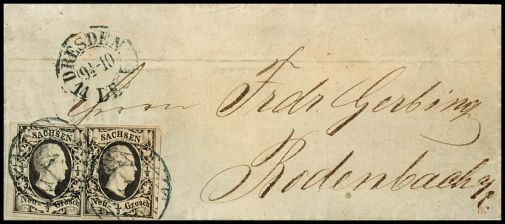 DRESDEN
9½-10
14 DE
Herrn Frdr. Gerbing
Rodenbach
SACHSEN
SACHSEN
Neu-½ Grosch
Neu-½ Grosch